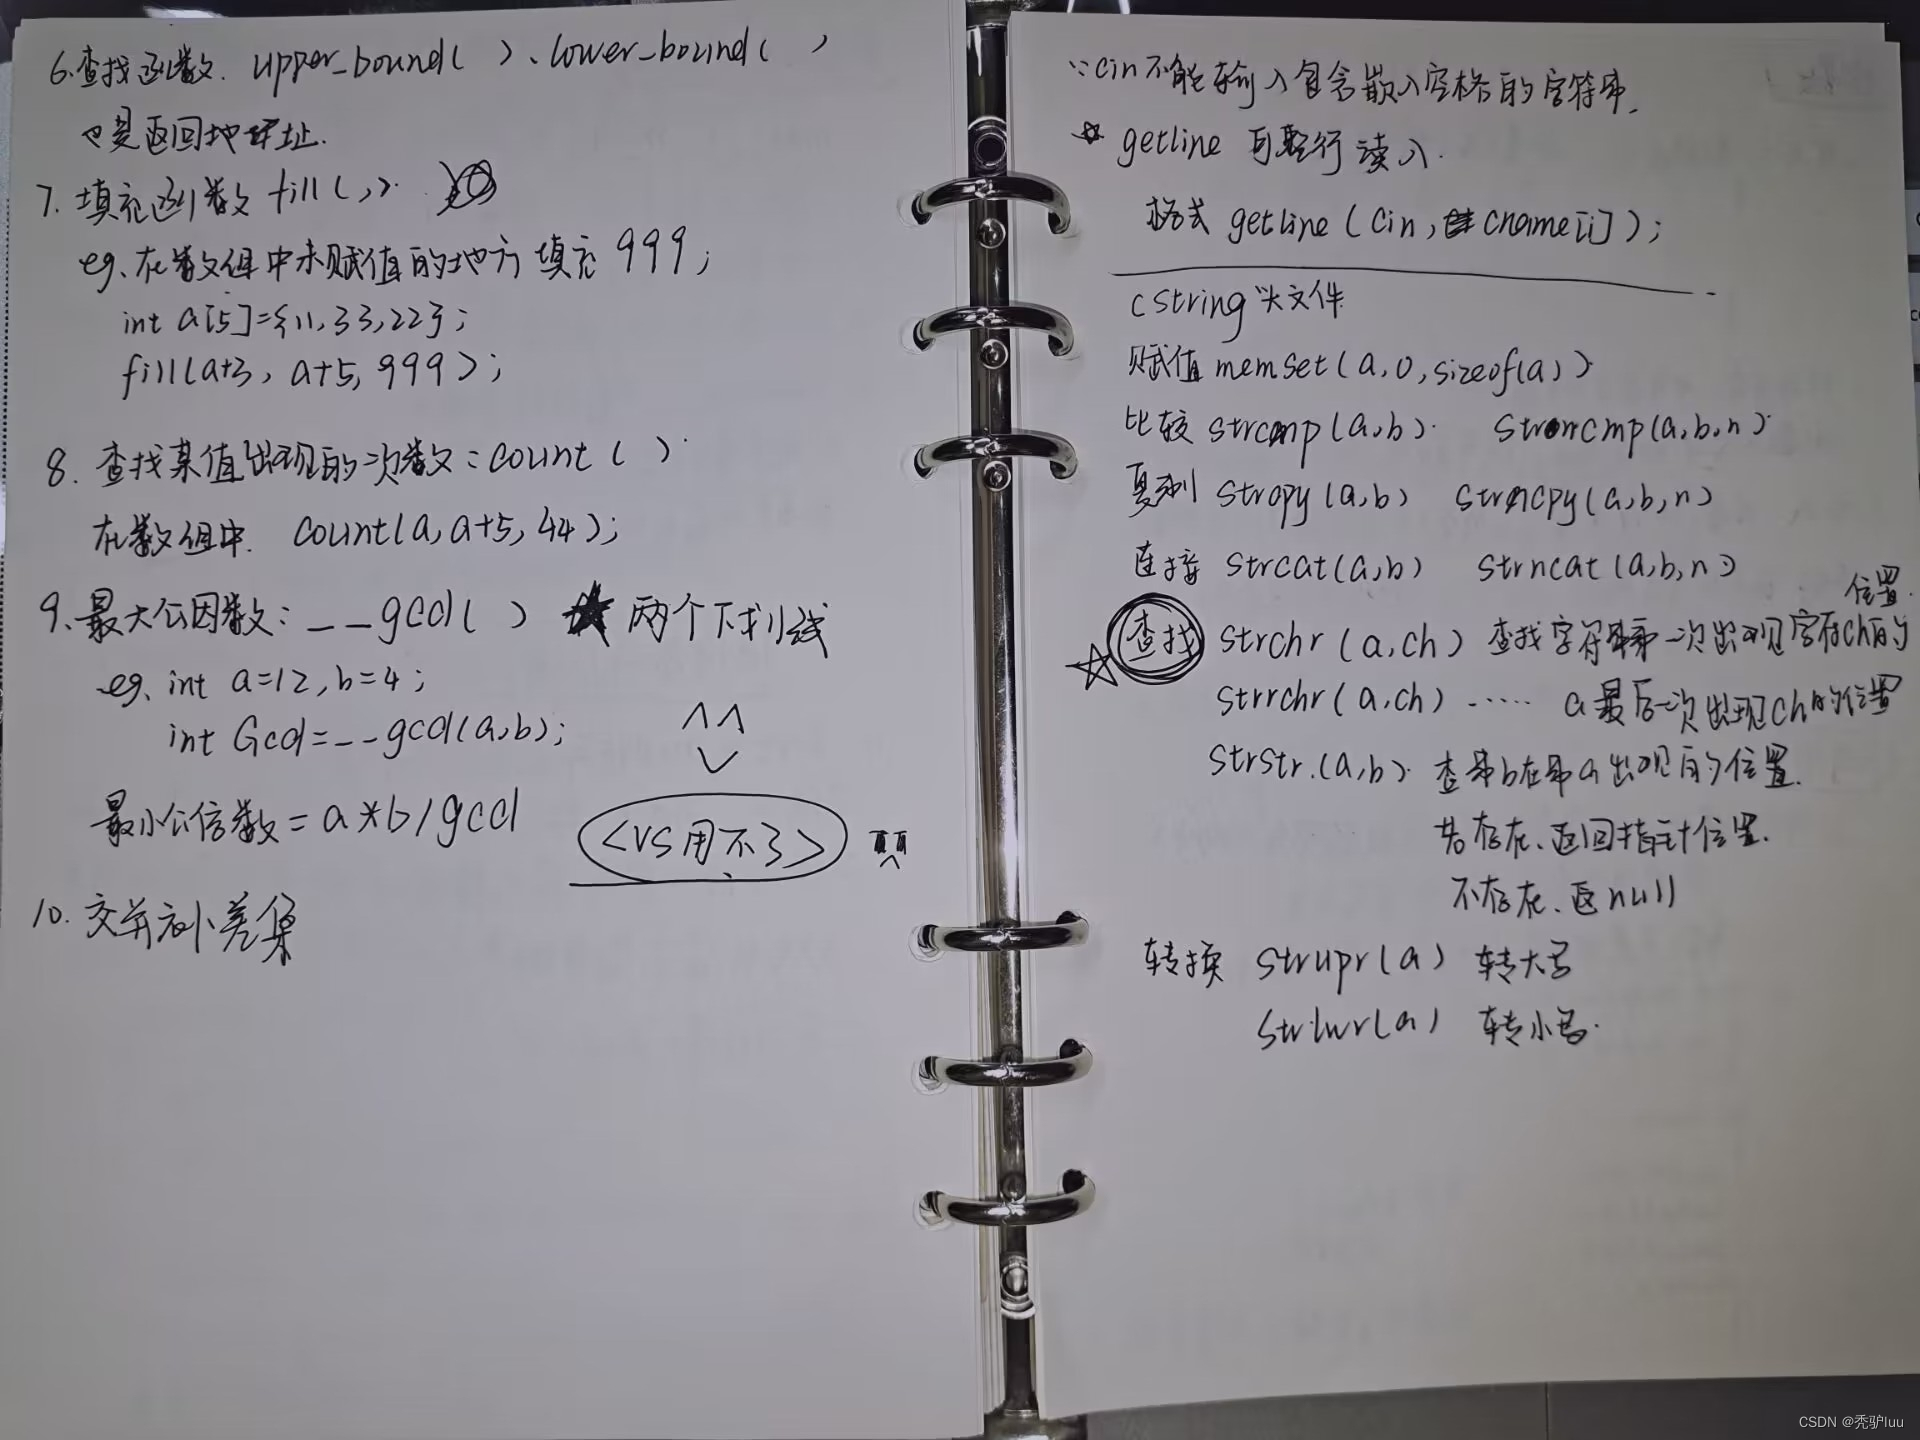 6.查找函数. upper_bound( )、lower_bound( )
也是返回地址.
7. 填充函数 fill(,).
eg、在数组中未赋值的地方填充 999;
int a[5]={11,33,22};
fill(a+3, a+5, 999);
8. 查找某值出现的次数:count( )
在数组中. count(a, a+5, 44);
9、最大公因数: __gcd( ) ★ 两个下划线
eg、int a=12, b=4;
int Gcd=__gcd(a,b);
最小公倍数 = a*b/gcd
<VS用不了>
10. 交并补差集
∵cin不能输入包含嵌入空格的字符串.
☆ getline 可整行读入.
格式 getline (cin, cname[i]);
cstring 头文件
赋值 memset(a,0,sizeof(a))
比较 strcmp(a,b). strncmp(a,b,n)
复制 strcpy(a,b) strncpy(a,b,n)
连接 strcat(a,b) strncat(a,b,n)
☆ 查找 strchr(a,ch) 查找字符串第一次出现字符ch的位置.
strrchr(a,ch) ······ a最后一次出现ch的位置
strstr.(a,b). 查串b在串a出现的位置.
若存在、返回指针位置.
不存在、返null
转换 strupr(a) 转大写
strlwr(a) 转小写.
CSDN @秃驴luu